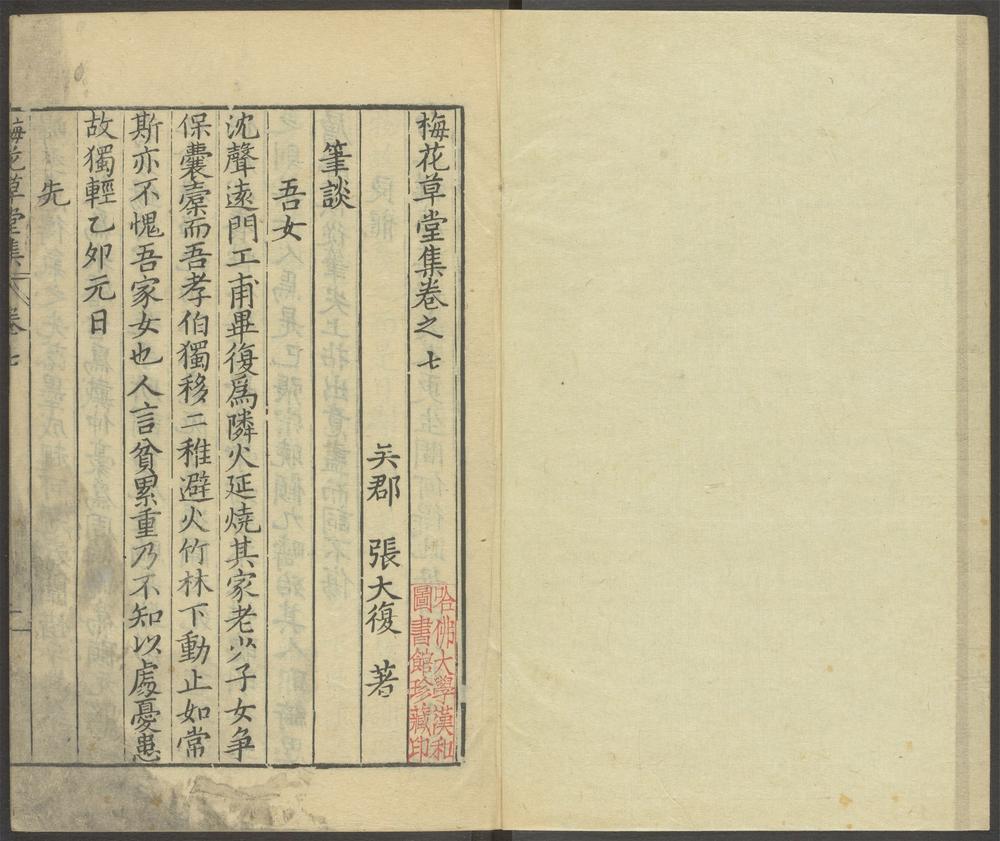 梅花草堂集卷之七
吳郡 張大復 著
筆談
吾女
沈聲遠門工甫畢復爲隣火延燒其家老少子女爭
保囊槖而吾孝伯獨移二稚避火竹林下動止如常
斯亦不愧吾家女也人言貧累重乃不知以處憂患
故獨輕乙夘元日
先
梅花草堂集 卷七 一
哈佛大學漢和
圖書館珍藏印